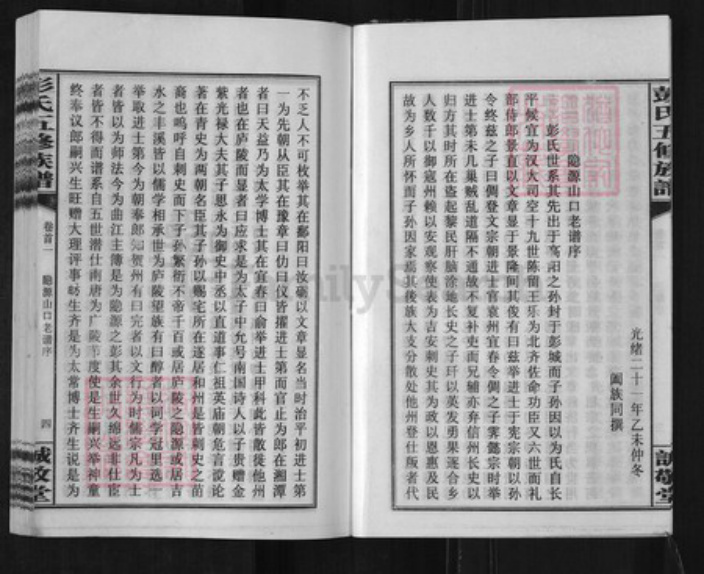 彭氏五修族谱
誠敬堂
光绪二十一年乙未仲冬
阖族同撰
隐源山口老谱序
彭氏世系其先出于高阳之孙封于彭城而子孙因以为氏自长
平候宜为汉大司空十九世陈留王乐为北齐佐命功臣又六世而礼
部侍郎景直以文章显于景隆间其俊有曰兹举进士于宪宗朝以孙
令终兹之子曰偶登文宗朝进士官袁州宜春令倜之子霁懿宗时举
进士第未几巢贼乱道隔不通故不复补吏而兄辅亦弃信州长史以
归方其时所在盗起黎民肝脑涂地长史之子玕以英发勇果逐合乡
人数千以御寇州赖以安观察使表为吉安刺史其为政以恩惠及民
故为乡人所怀而子孙因家焉其後族大支分散处他州登仕版者代
不乏人不可枚举其在鄱阳曰汝砺以文章显名当时治平初进士第
一为先朝从臣其在豫章曰仂曰仪皆擢进士第而官止为郎在湘潭
者曰天益乃为太学博士其在宜春曰俞举进士甲科此皆散徙他州
者也在庐陵而显者曰应求是为太子中允号南国诗人以子贵赠金
紫光禄大夫其子思永为御史中丞以直道事仁祖英庙朝危言谠论
著在青史为两朝名臣其子孙以赐宅所在遂居和州是皆刺史之苗
裔也呜呼自刺史而下子孙繁衍不帝千百或居庐陵之隐源或居吉
水之丰溪皆以儒学相承世为庐陵望族有曰醇者以同学冠里选一
举取进士第今为朝奉郎知贺州有曰完者以文行为时儒宗凡为士
者皆以为师法今为曲江主簿是为隐源之彭其余世久绵远非仕宦
者皆不得而谱系自五世潜仕南唐为广陵节度使是生嗣兴举神童
终奉议郎嗣兴生旺赠大理评事旸生齐是为太常博士齐生说是为
彭氏五修族谱
卷首一
隐源山口老谱序
四
誠敬堂
FamilyS